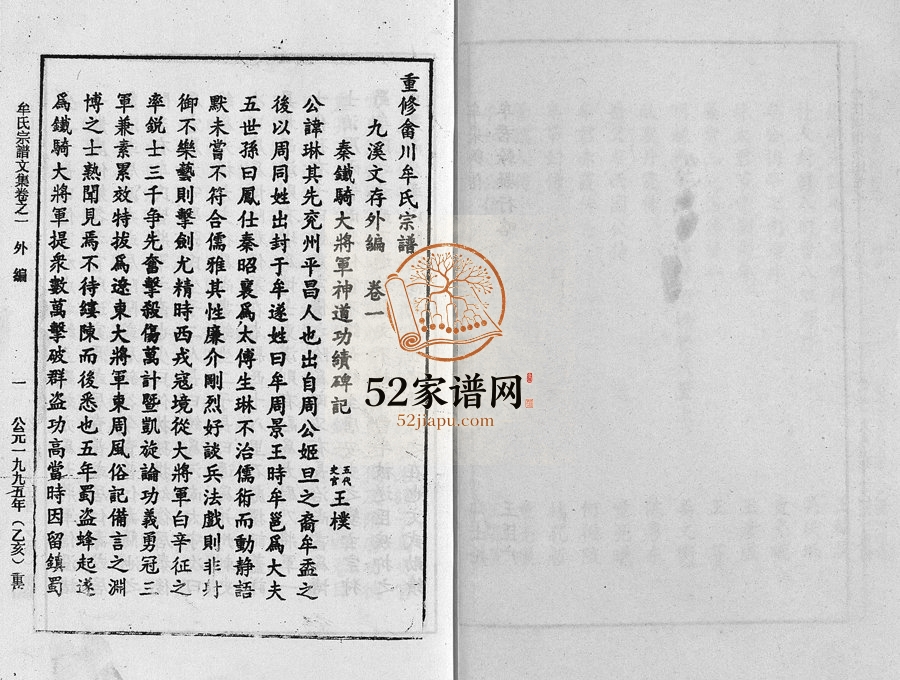 重修畲川牟氏宗譜
九溪文存外編 卷一
秦鐵騎大將軍神道功績碑記
五代史官王樸
公諱琳其先兖州平昌人也出自周公姬旦之裔牟孟之
後以周同姓出封于牟遂姓曰牟周景王時牟邕為大夫
五世孫曰鳳仕秦昭襄為太傅生琳不治儒術而動静語
默未嘗不符合儒雅其性廉介剛烈好談兵法戲則非射
御不樂藝則擊劍尤精時西戎寇境從大將軍白辛征之
率銳士三千争先奮擊殺傷萬計暨凱旋論功義勇冠三
軍兼素累效特拔為遼東大將軍東周風俗記備言之淵
博之士熟聞見焉不待縷陳而後悉也五年蜀盗蜂起遂
為鐵騎大將軍提衆數萬擊破群盗功高當時因留鎮蜀
牟氏宗譜文集卷之一 外編
一
公元一九九五年（乙亥）重
52家谱网
52jiapu.com